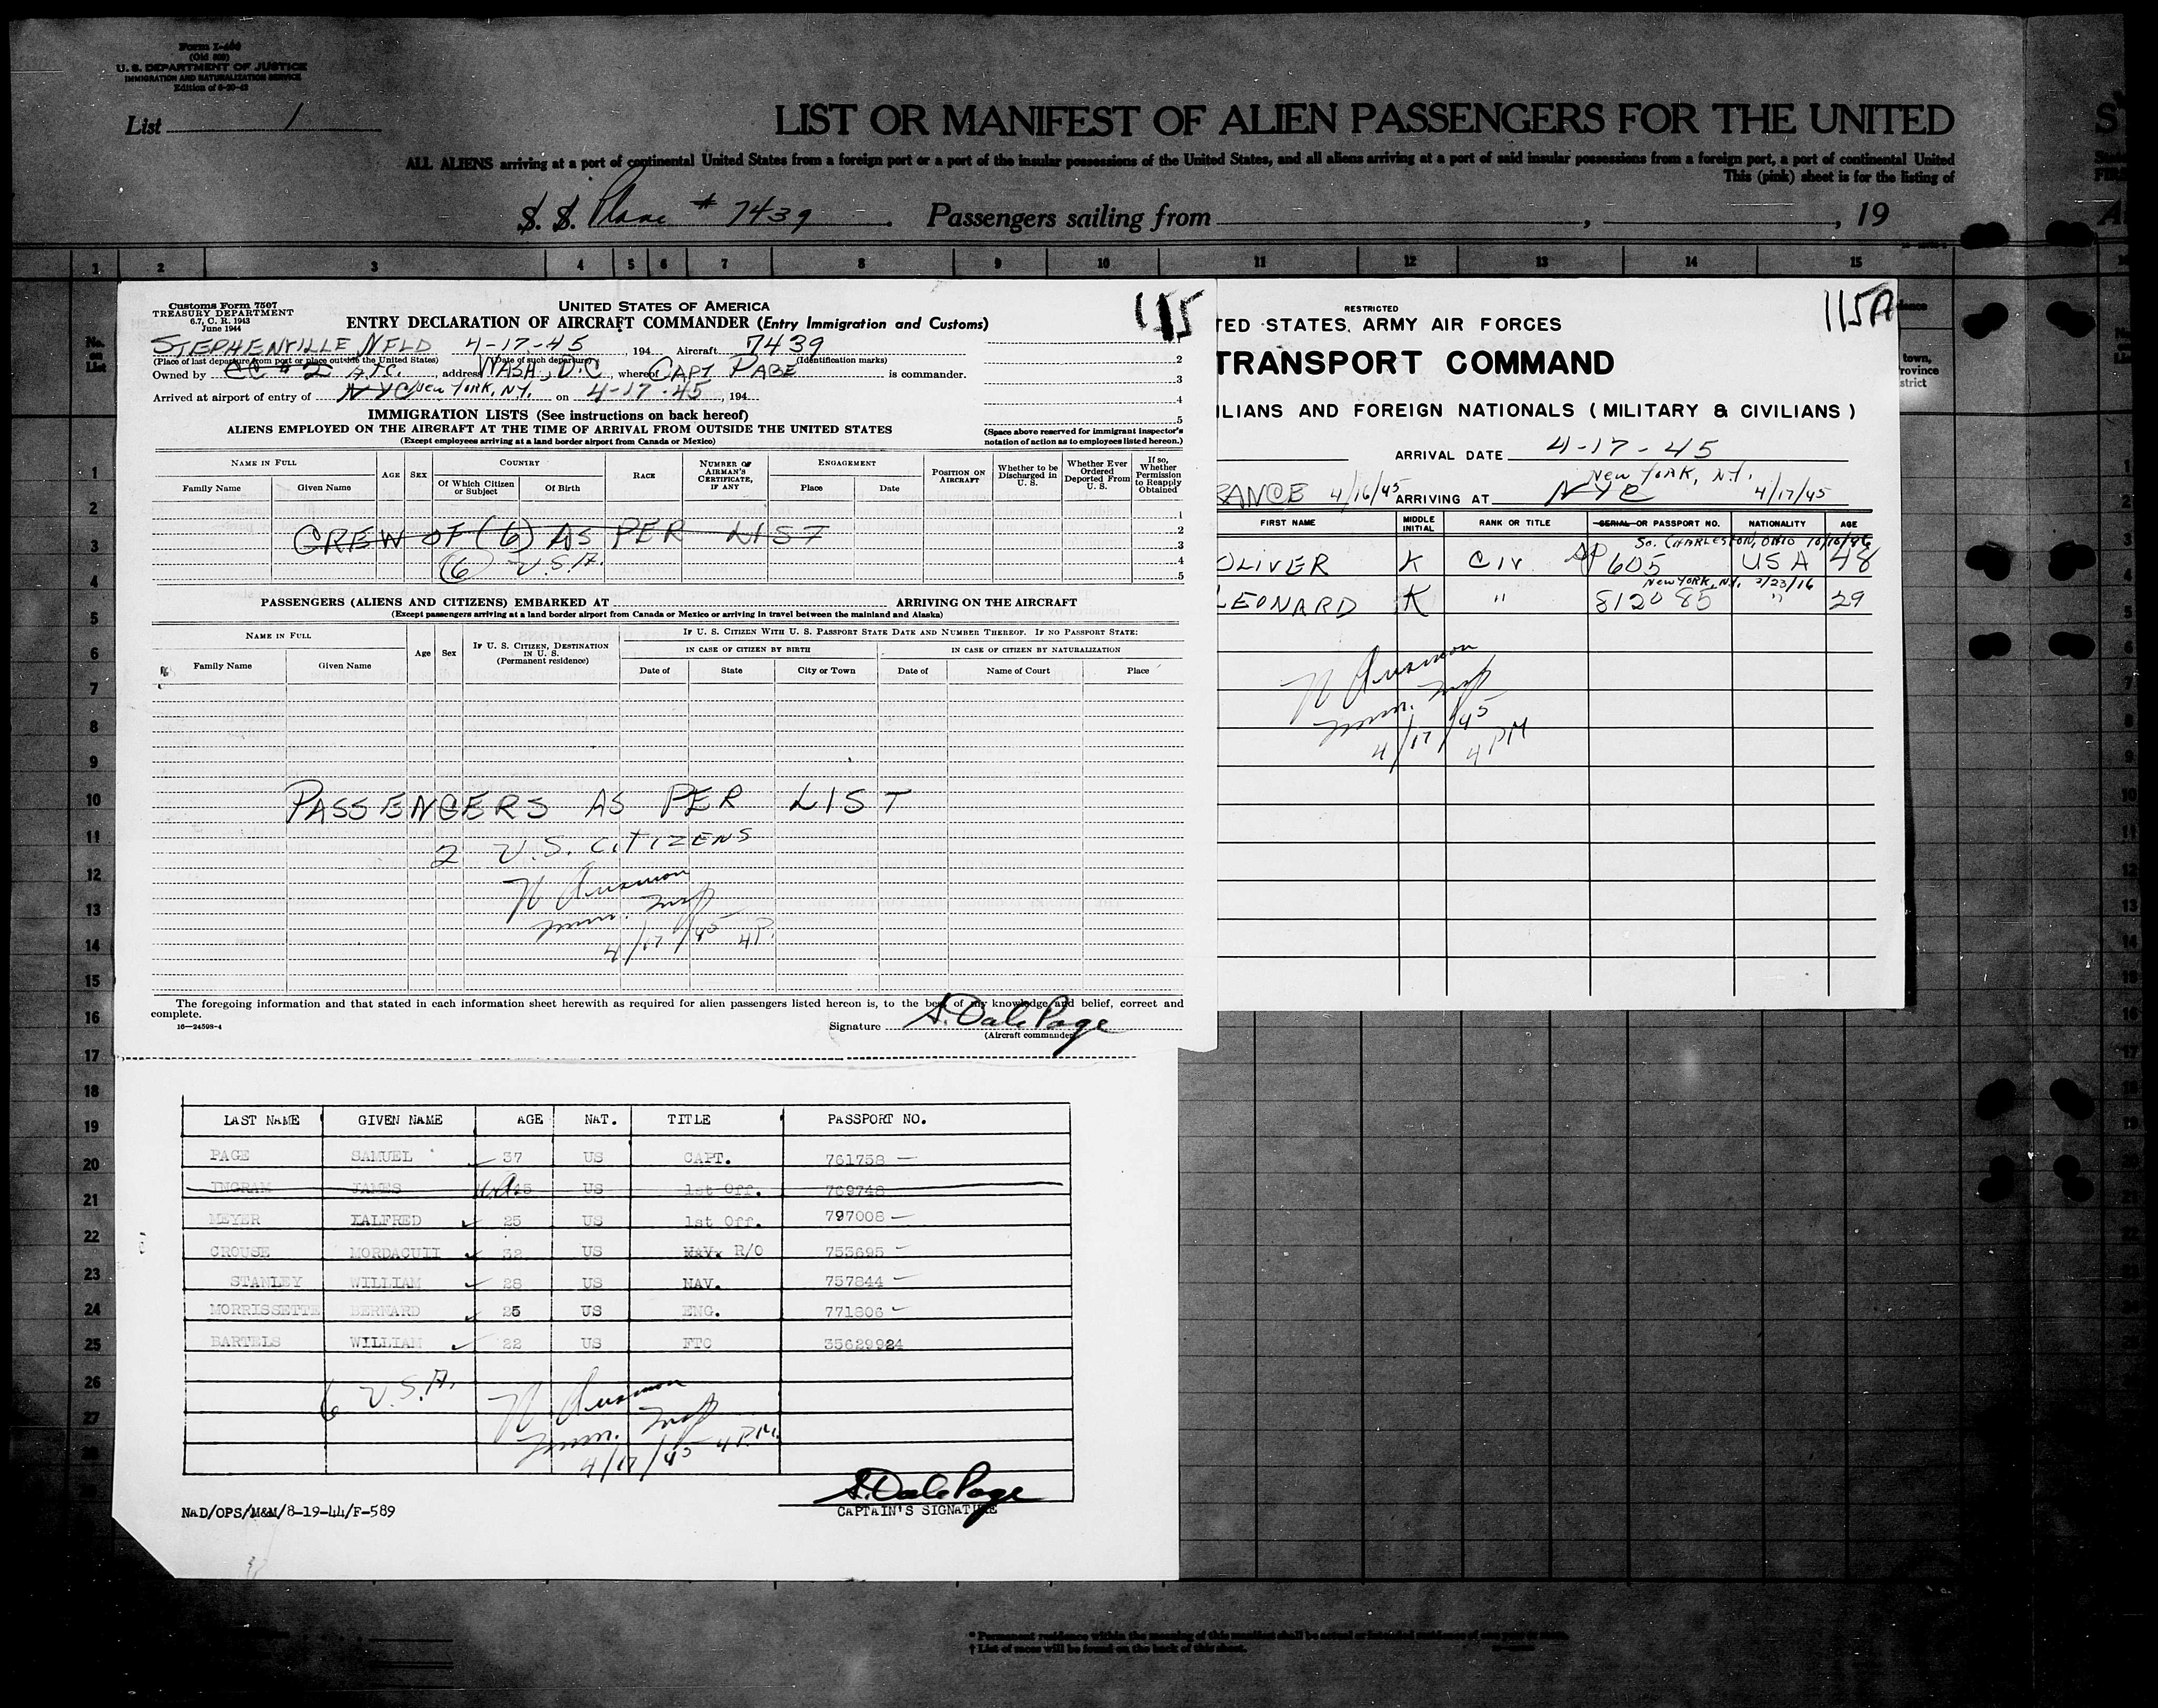 Form I-466
(Old 500)
U. S. DEPARTMENT OF JUSTICE
IMMIGRATION AND NATURALIZATION SERVICE
List 1
LIST OR MANIFEST OF ALIEN PASSENGERS FOR THE UNITED
ALL ALIENS arriving at a port of continental United States from a foreign port or a port of the insular possessions of the United States, and all aliens arriving at a port of said insular possessions from a foreign port, a port of continental United
This (pink) sheet is for the listing of
S. S. Plane # 7439 Passengers sailing from , , 19
1 2 3 4 5 6 7 8 9 10 11 12 13 14 15
No. on List
Customs Form 7507
TREASURY DEPARTMENT
6.7, C. R. 1943
June 1944
UNITED STATES OF AMERICA
ENTRY DECLARATION OF AIRCRAFT COMMANDER (Entry Immigration and Customs)
115
STEPHENVILLE NFLD 4-17-45 194 Aircraft 7439
(Place of last departure from port or place outside the United States) (Date of such departure) (Identification marks)
Owned by CC #2 A.T.C. , address WASH, D.C , whereof CAPT PAGE is commander.
Arrived at airport of entry of NYC New York, N.Y. on 4-17-45 , 194
IMMIGRATION LISTS (See instructions on back hereof)
ALIENS EMPLOYED ON THE AIRCRAFT AT THE TIME OF ARRIVAL FROM OUTSIDE THE UNITED STATES
(Except employees arriving at a land border airport from Canada or Mexico)
(Space above reserved for immigrant inspector's notation of action as to employees listed hereon.)
NAME IN FULL AGE SEX COUNTRY RACE NUMBER OF AIRMAN'S CERTIFICATE, IF ANY ENGAGEMENT POSITION ON AIRCRAFT Whether to be Discharged in U. S. Whether Ever Ordered Deported From U. S. If so, Whether Permission to Reapply Obtained
Family Name Given Name Of Which Citizen or Subject Of Birth Place Date
CREW OF (6) AS PER LIST
(6) U.S.A.
PASSENGERS (ALIENS AND CITIZENS) EMBARKED AT ARRIVING ON THE AIRCRAFT
(Except passengers arriving at a land border airport from Canada or Mexico or arriving in travel between the mainland and Alaska)
NAME IN FULL Age Sex IF U. S. CITIZEN, DESTINATION IN U. S. (Permanent residence) IF U. S. CITIZEN WITH U. S. PASSPORT STATE DATE AND NUMBER THEREOF. IF NO PASSPORT STATE:
IN CASE OF CITIZEN BY BIRTH IN CASE OF CITIZEN BY NATURALIZATION
Family Name Given Name Date of State City or Town Date of Name of Court Place
PASSENGERS AS PER LIST
2 U.S. CITIZENS
Imm. Insp
4/17/45 4P.
The foregoing information and that stated in each information sheet herewith as required for alien passengers listed hereon is, to the best of my knowledge and belief, correct and
complete.
16—24598-4
Signature S. Dale Page
(Aircraft commander)
RESTRICTED
115A
TED STATES ARMY AIR FORCES
TRANSPORT COMMAND
ILIANS AND FOREIGN NATIONALS ( MILITARY & CIVILIANS )
ARRIVAL DATE 4-17-45
RANCE 4/16/45 ARRIVING AT NYC New York, N.Y. 4/17/45
FIRST NAME MIDDLE INITIAL RANK OR TITLE SERIAL OR PASSPORT NO. NATIONALITY AGE
So. CHARLESTON, OHIO 10/10/96
OLIVER K CIV SP 605 USA 48
New York, N.Y. 2/23/16
LEONARD K " 812085 " 29
Imm. Insp
4/17/45
4 PM
LAST NAME GIVEN NAME AGE NAT. TITLE PASSPORT NO.
PAGE SAMUEL 37 US CAPT. 761758
INGRAM JAMES 45 US 1st Off. 769748
MEYER XALFRED 25 US 1st Off. 797008
CROUSE MORDACUII 32 US NAV. R/O 753695
STANLEY WILLIAM 28 US NAV. 757844
MORRISSETTE BERNARD 25 US ENG. 771806
BARTELS WILLIAM 22 US FTC 35629924
6 U.S.A.
Imm. Insp
4/17/45 4 P.M.
S. Dale Page
CAPTAIN'S SIGNATURE
NAD/OPS/M&M/8-19-44/F-589
* Permanent residence within the meaning of this manifest shall be actual or intended residence of one year or more.
† List of races will be found on the back of this sheet.